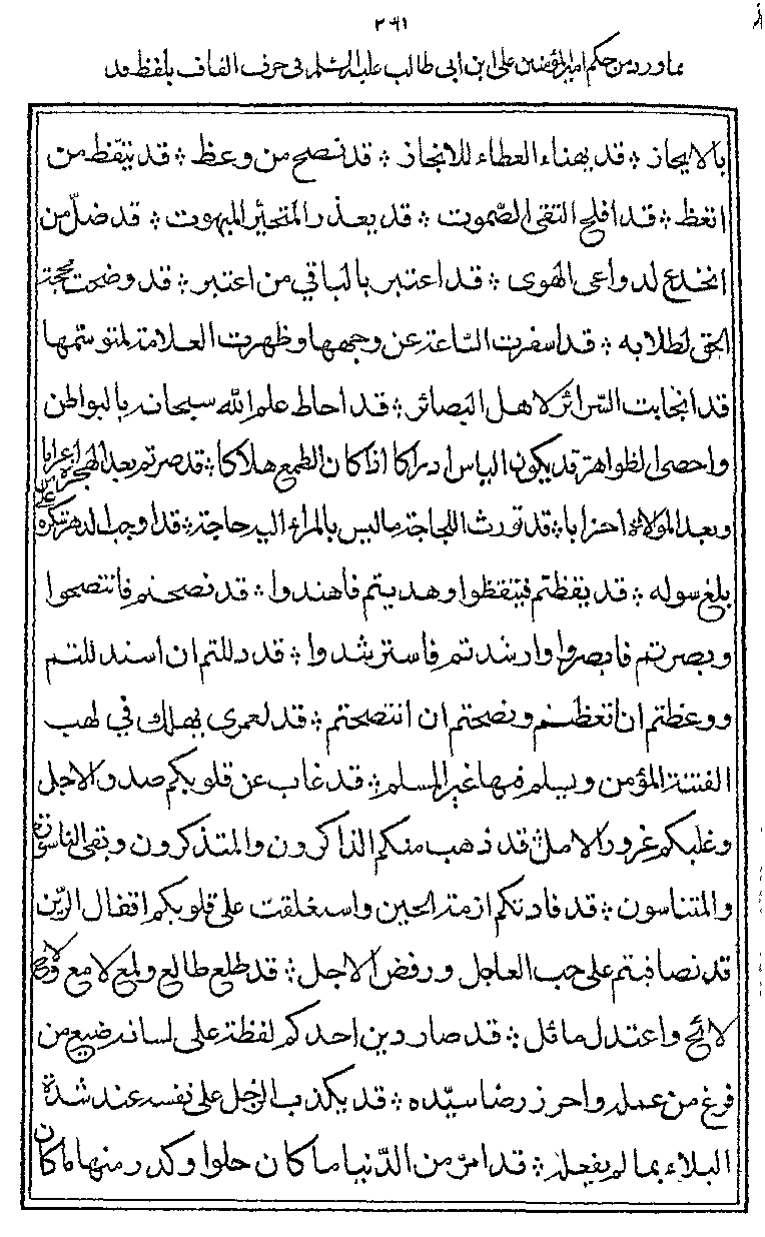 ٢٦١
مما ورد من حكم امير المؤمنين علي ابن ابي طالب عليه السلم في حرف القاف بلفظ قد
بالايجاز ؞ قد يهناء العطاء للانجاز ؞ قد نصح من وعظ ؞ قد تيقّظ من
اتعظ ؞ قد افلح التقي الصّموت ؞ قد يعذر المتحيّر المبهوت ؞ قد ضلّ من
انخدع لدواعي الهوى ؞ قد اعتبر بالباقي من اعتبر ؞ قد وضحت محجة
الحق لطلابه ؞ قد اسفرت السّاعة عن وجهها وظهرت العلامة لمتوسّمها
قد انجابت السّرائر لاهل البصائر ؞ قد احاط علم الله سبحانه بالبواطن
واحصى الظواهر قد يكون الياس ادراكا اذا كان الطمع هلاكا ؞ قد صرتم بعد الهجرة اعرابا
وبعد الموالاة احزابا ؞ قد تورث اللجاجة ما ليس بالمرء اليه حاجة ؞ قد اوجب الدهر شكره على من
بلغ سوله ؞ قد يقظتم فتيقظوا وهديتم فاهتدوا ؞ قد نصحتم فانتصحوا
وبصرتم فابصروا وارشدتم فاسترشدوا ؞ قد دللتم ان استدللتم
ووعظتم ان اتعظتم ونصحتم ان انتصحتم ؞ قد لعمري يهلك في لهب
الفتنة المؤمن ويسلم فيها غير المسلم ؞ قد غاب عن قلوبكم صدق الاجل
وغلبكم غرور الامل ؞ قد ذهب منكم الذاكرون والمتذكرون وبقي الناسون
والمتناسون ؞ قد قادتكم ازمة الحين واستغلقت على قلوبكم اقفال الرّين
قد تصافيتم على حب العاجل ورفض الاجل ؞ قد طلع طالع ولمع لامع ولاح
لائح واعتدل مائل ؞ قد صار دين احدكم لفظة على لسانه صنيع من
فرغ من عمله واحرز رضا سيّده ؞ قد يكذب الرّجل على نفسه عند شدة
البلاء بما لم يفعله ؞ قد امرّ من الدّنيا ما كان حلوا وكدر منها ما كان